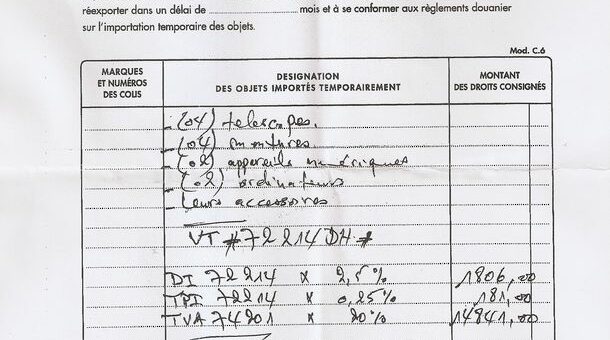 réexporter dans un délai de mois et à se conformer aux règlements douanier
sur l'importation temporaire des objets.
Mod. C.6
MARQUES
ET NUMÉROS
DES COLIS
DESIGNATION
DES OBJETS IMPORTÉS TEMPORAIREMENT
MONTANT
DES DROITS CONSIGNÉS
- (04) telescopes.
- (04) montures
- (02) appareils numériques
- (02) ordinateurs
- Leurs accessoires
VT #72214 DH #
DI 72214 x 2,5% 1806,00
TPI 72214 x 0,25% 181,00
TVA 74201 x 20% 14841,00